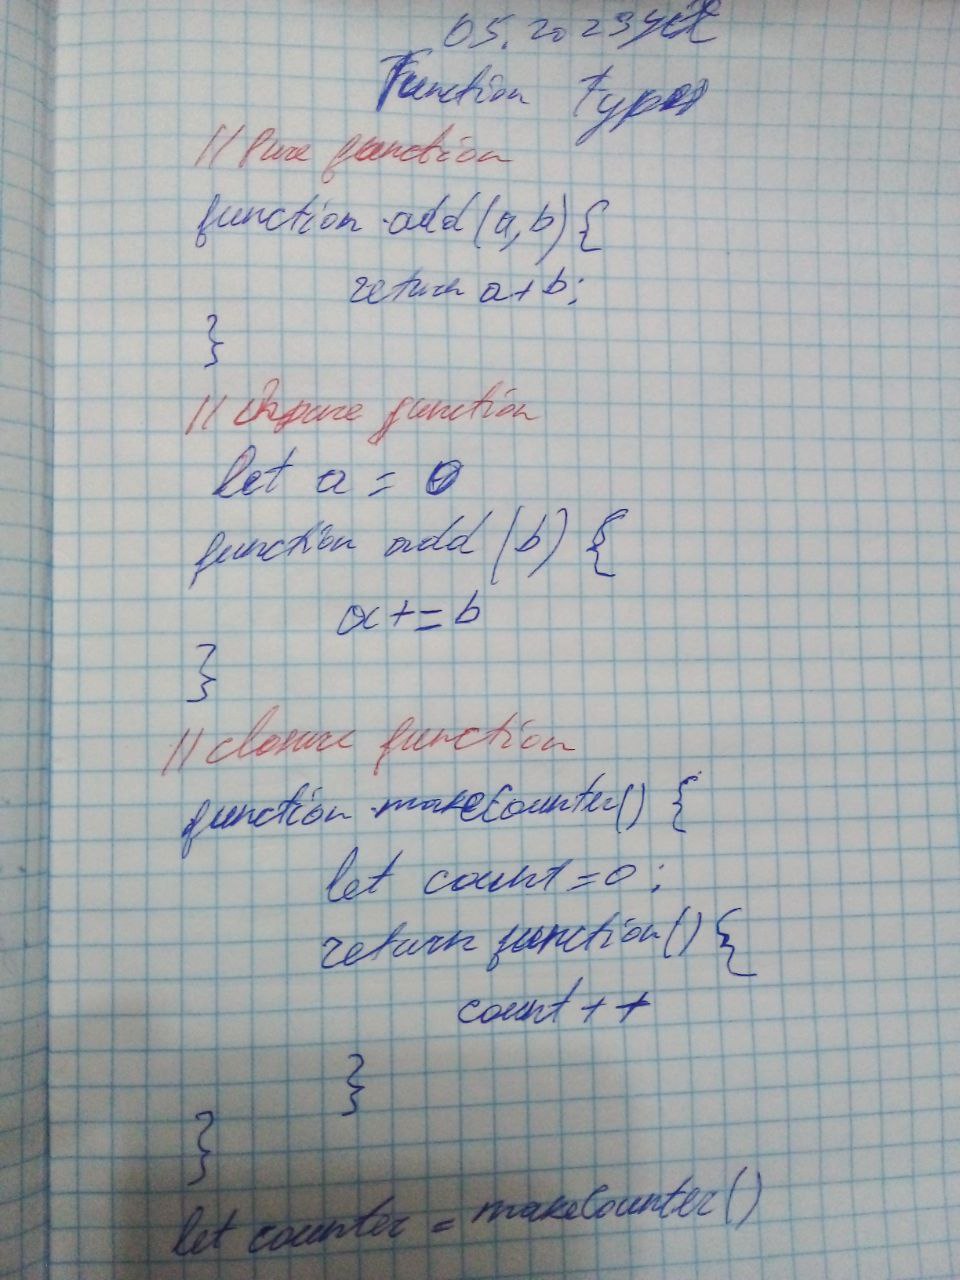 05.2023
Function Types
// Pure function
function add(a,b){
return a+b;
}
// Inpure function
let a = 0
function add (b) {
a+=b
}
// closure function
function makeCounter() {
let count=0;
return function() {
count++
}
}
let counter = makeCounter()